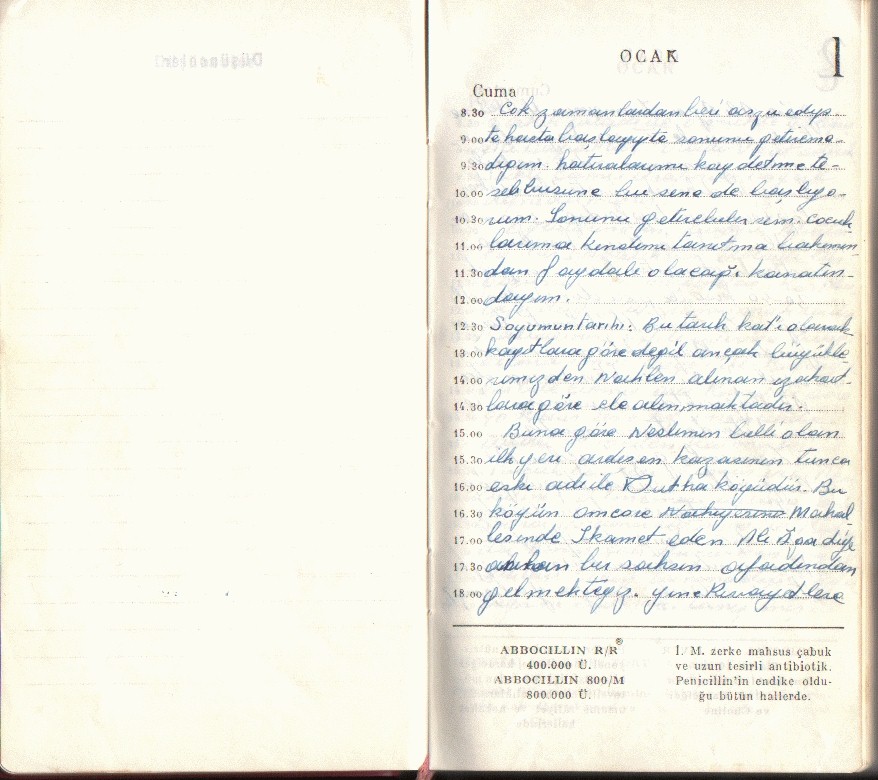 Düşünceler
OCAK
1
Cuma
8.30 Çok zamanlardan beri arzu edip
9.00 te hatta başlayıpta sonunu getireme-
9.30 diğim hatıralarımı kaydetme te-
10.00 şebbüsüne bu sene de başlıyo-
10.30 rum. Sonunu getirebilirsem çocuk-
11.00 larıma kendimi tanıtma bakımın-
11.30 dan faydalı olacağı kanatın-
12.00 dayım.
12.30 Soyumun tarihi: Bu tarih kat'i olarak
13.00 kayıtlara göre değil ancak büyükle-
14.00 rimizden naklen alınan izahat-
14.30 lara göre ele alınmaktadır.
15.00 Buna göre Neslimin belli olan
15.30 ilk yeri ardeşen kazasının tunca
16.00 eski adı ile Dutha köyüdür. Bu
16.30 köyün amcore Mahal-
17.00 lesinde İkamet eden Ali Ağa diye
17.30 bu şahsın
18.00 gelmekteyiz. yine Rivayetlere
ABBOCILLIN R/R®
400.000 Ü.
ABBOCILLIN 800/M
800.000 Ü.
İ. M. zerke mahsus çabuk
ve uzun tesirli antibiotik.
Penicillin'in endike oldu-
ğu bütün hallerde.